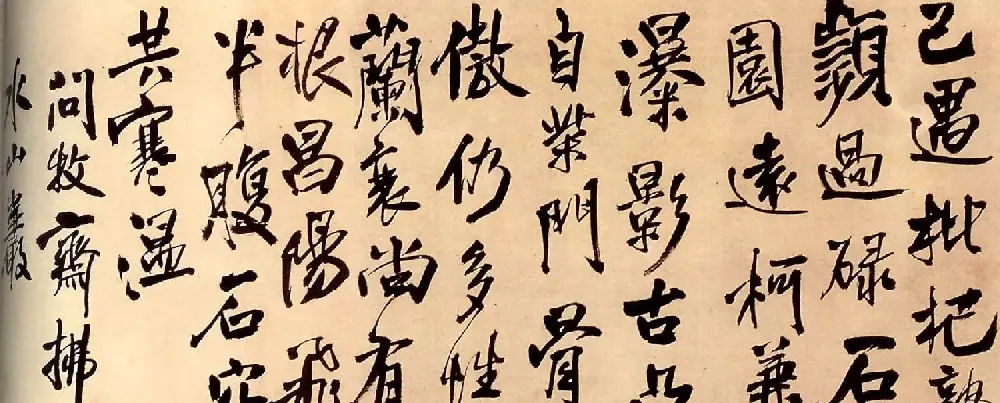 已遇枇杷熟
顛過碌石
園遠柯兼
瀑影古
自柴門骨
傲仍多性
蘭衰尚有
根昌陽飛
半腹石穴
共寒温
問牧齋拂
水山巖